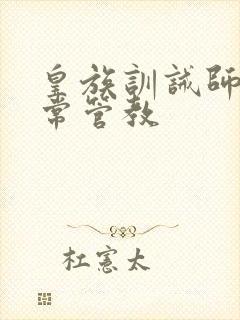 皇族訓誡師
常管教
杜憲太